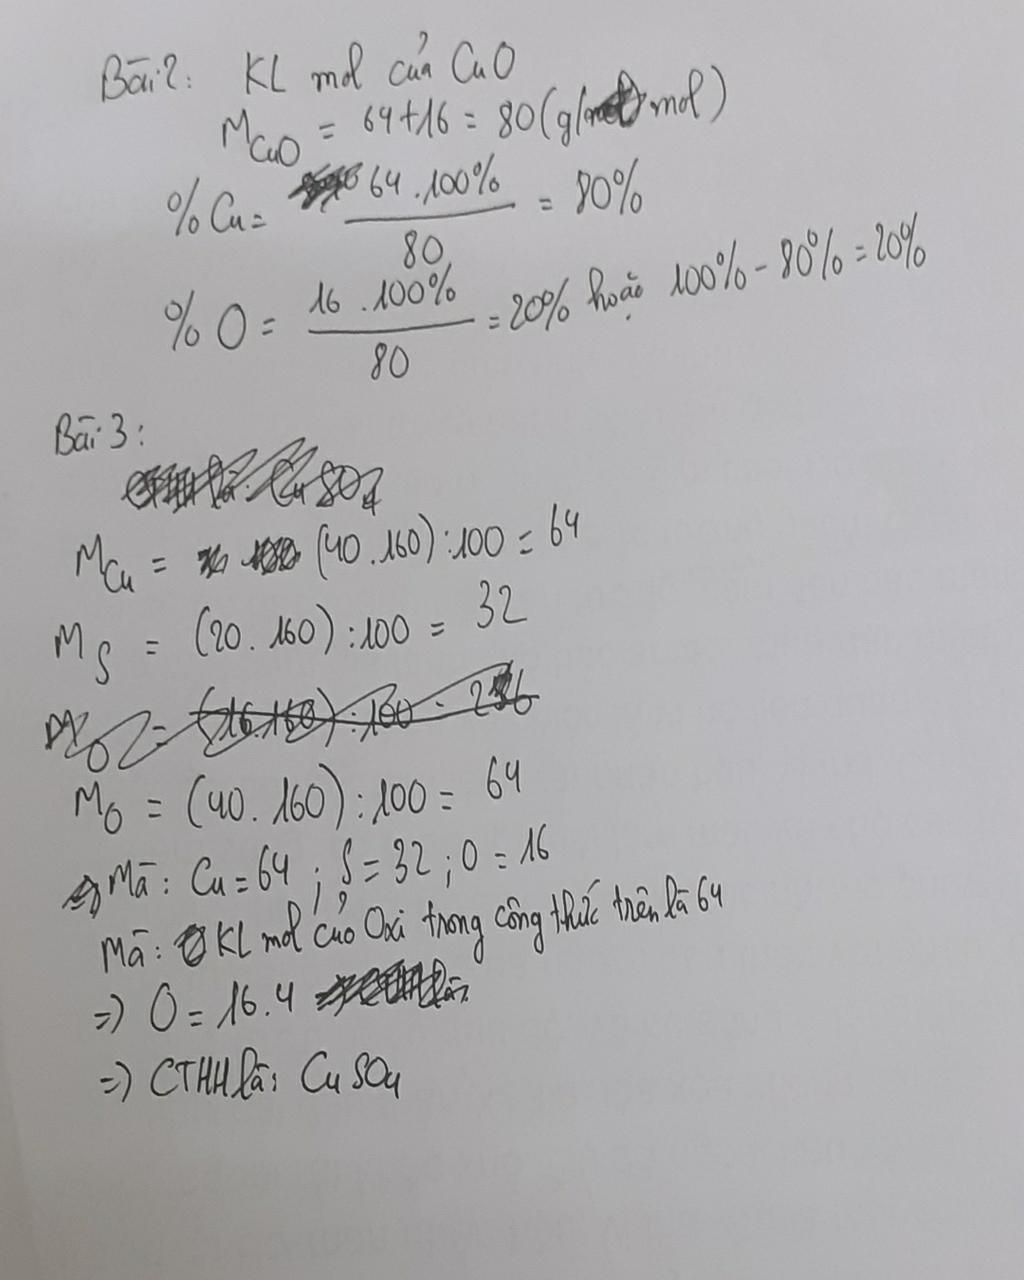 Bài 2: KL mol của CuO
M CuO = 64+16 = 80(g/ mol)
%Cu= 64.100% / 80 = 80%
%O= 16.100% / 80 =20% hoặc 100%-80%=20%
Bài 3:
M Cu = (40.160):100=64
M S = (20.160):100= 32
M O = (40.160):100= 64
Mà: Cu=64; S=32; O=16
Mà: KL mol của Oxi trong công thức trên là 64
=> O=16.4
=> CTHH là: CuSO4